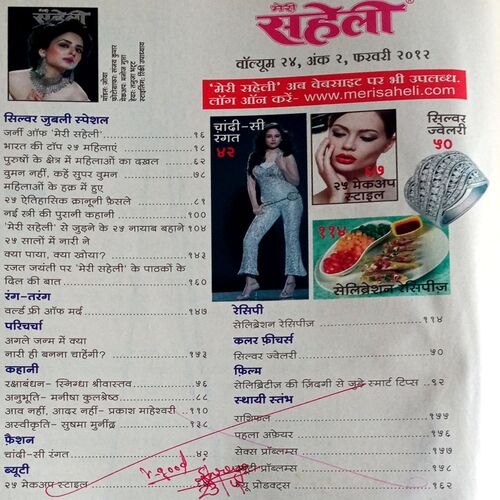 मेरी
सहेली
मेरी
सहेली®
वॉल्यूम २४, अंक २, फरवरी २०१२
'मेरी सहेली' अब वेबसाइट पर भी उपलब्ध.
लॉग ऑन करें- www.merisaheli.com
सिल्वर जुबली स्पेशल
जर्नी ऑफ 'मेरी सहेली' १६
भारत की टॉप २५ महिलाएं १८
पुरुषों के क्षेत्र में महिलाओं का दखल ६२
वुमन नहीं, कहें सुपर वुमन ७८
महिलाओं के हक़ में हुए
२५ ऐतिहासिक क़ानूनी फ़ैसले ८९
नई स्त्री की पुरानी कहानी १००
'मेरी सहेली' से जुड़ने के २५ नायाब बहाने १०४
२५ सालों में नारी ने
क्या पाया, क्या खोया? १४३
रजत जयंती पर 'मेरी सहेली' के पाठकों के
दिल की बात १६०
रंग-तरंग
वर्ल्ड फ्री ऑफ मर्द १४७
परिचर्चा
अगले जन्म में क्या
नारी ही बनना चाहेंगी? १५३
कहानी
रक्षाबंधन- स्निग्धा श्रीवास्तव ५६
अनुभूति- मनीषा कुलश्रेष्ठ ८८
आव नहीं, आदर नहीं- प्रकाश माहेश्वरी ११०
अस्वीकृति- सुषमा मुनींद्र १३८
फ़ैशन
चांदी-सी रंगत ४२
ब्यूटी
२५ मेकअप स्टाइल
चांदी-सी
रंगत
४२
६७
२५ मेकअप
स्टाइल
सिल्वर
ज्वेलरी
५०
११४
सेलिब्रेशन रेसिपीज़
रेसिपी
सेलिब्रेशन रेसिपीज़ ११४
कलर फ़ीचर्स
सिल्वर ज्वेलरी ५०
फ़िल्म
सेलिब्रिटीज़ की ज़िंदगी से जुड़े स्मार्ट टिप्स ९२
स्थायी स्तंभ
राशिफल १५७
पहला अफ़ेयर १७६
सेक्स प्रॉब्लम्स १७७
प्रॉब्लम्स १७८
न्यू प्रोडक्ट्स १६२
v.good